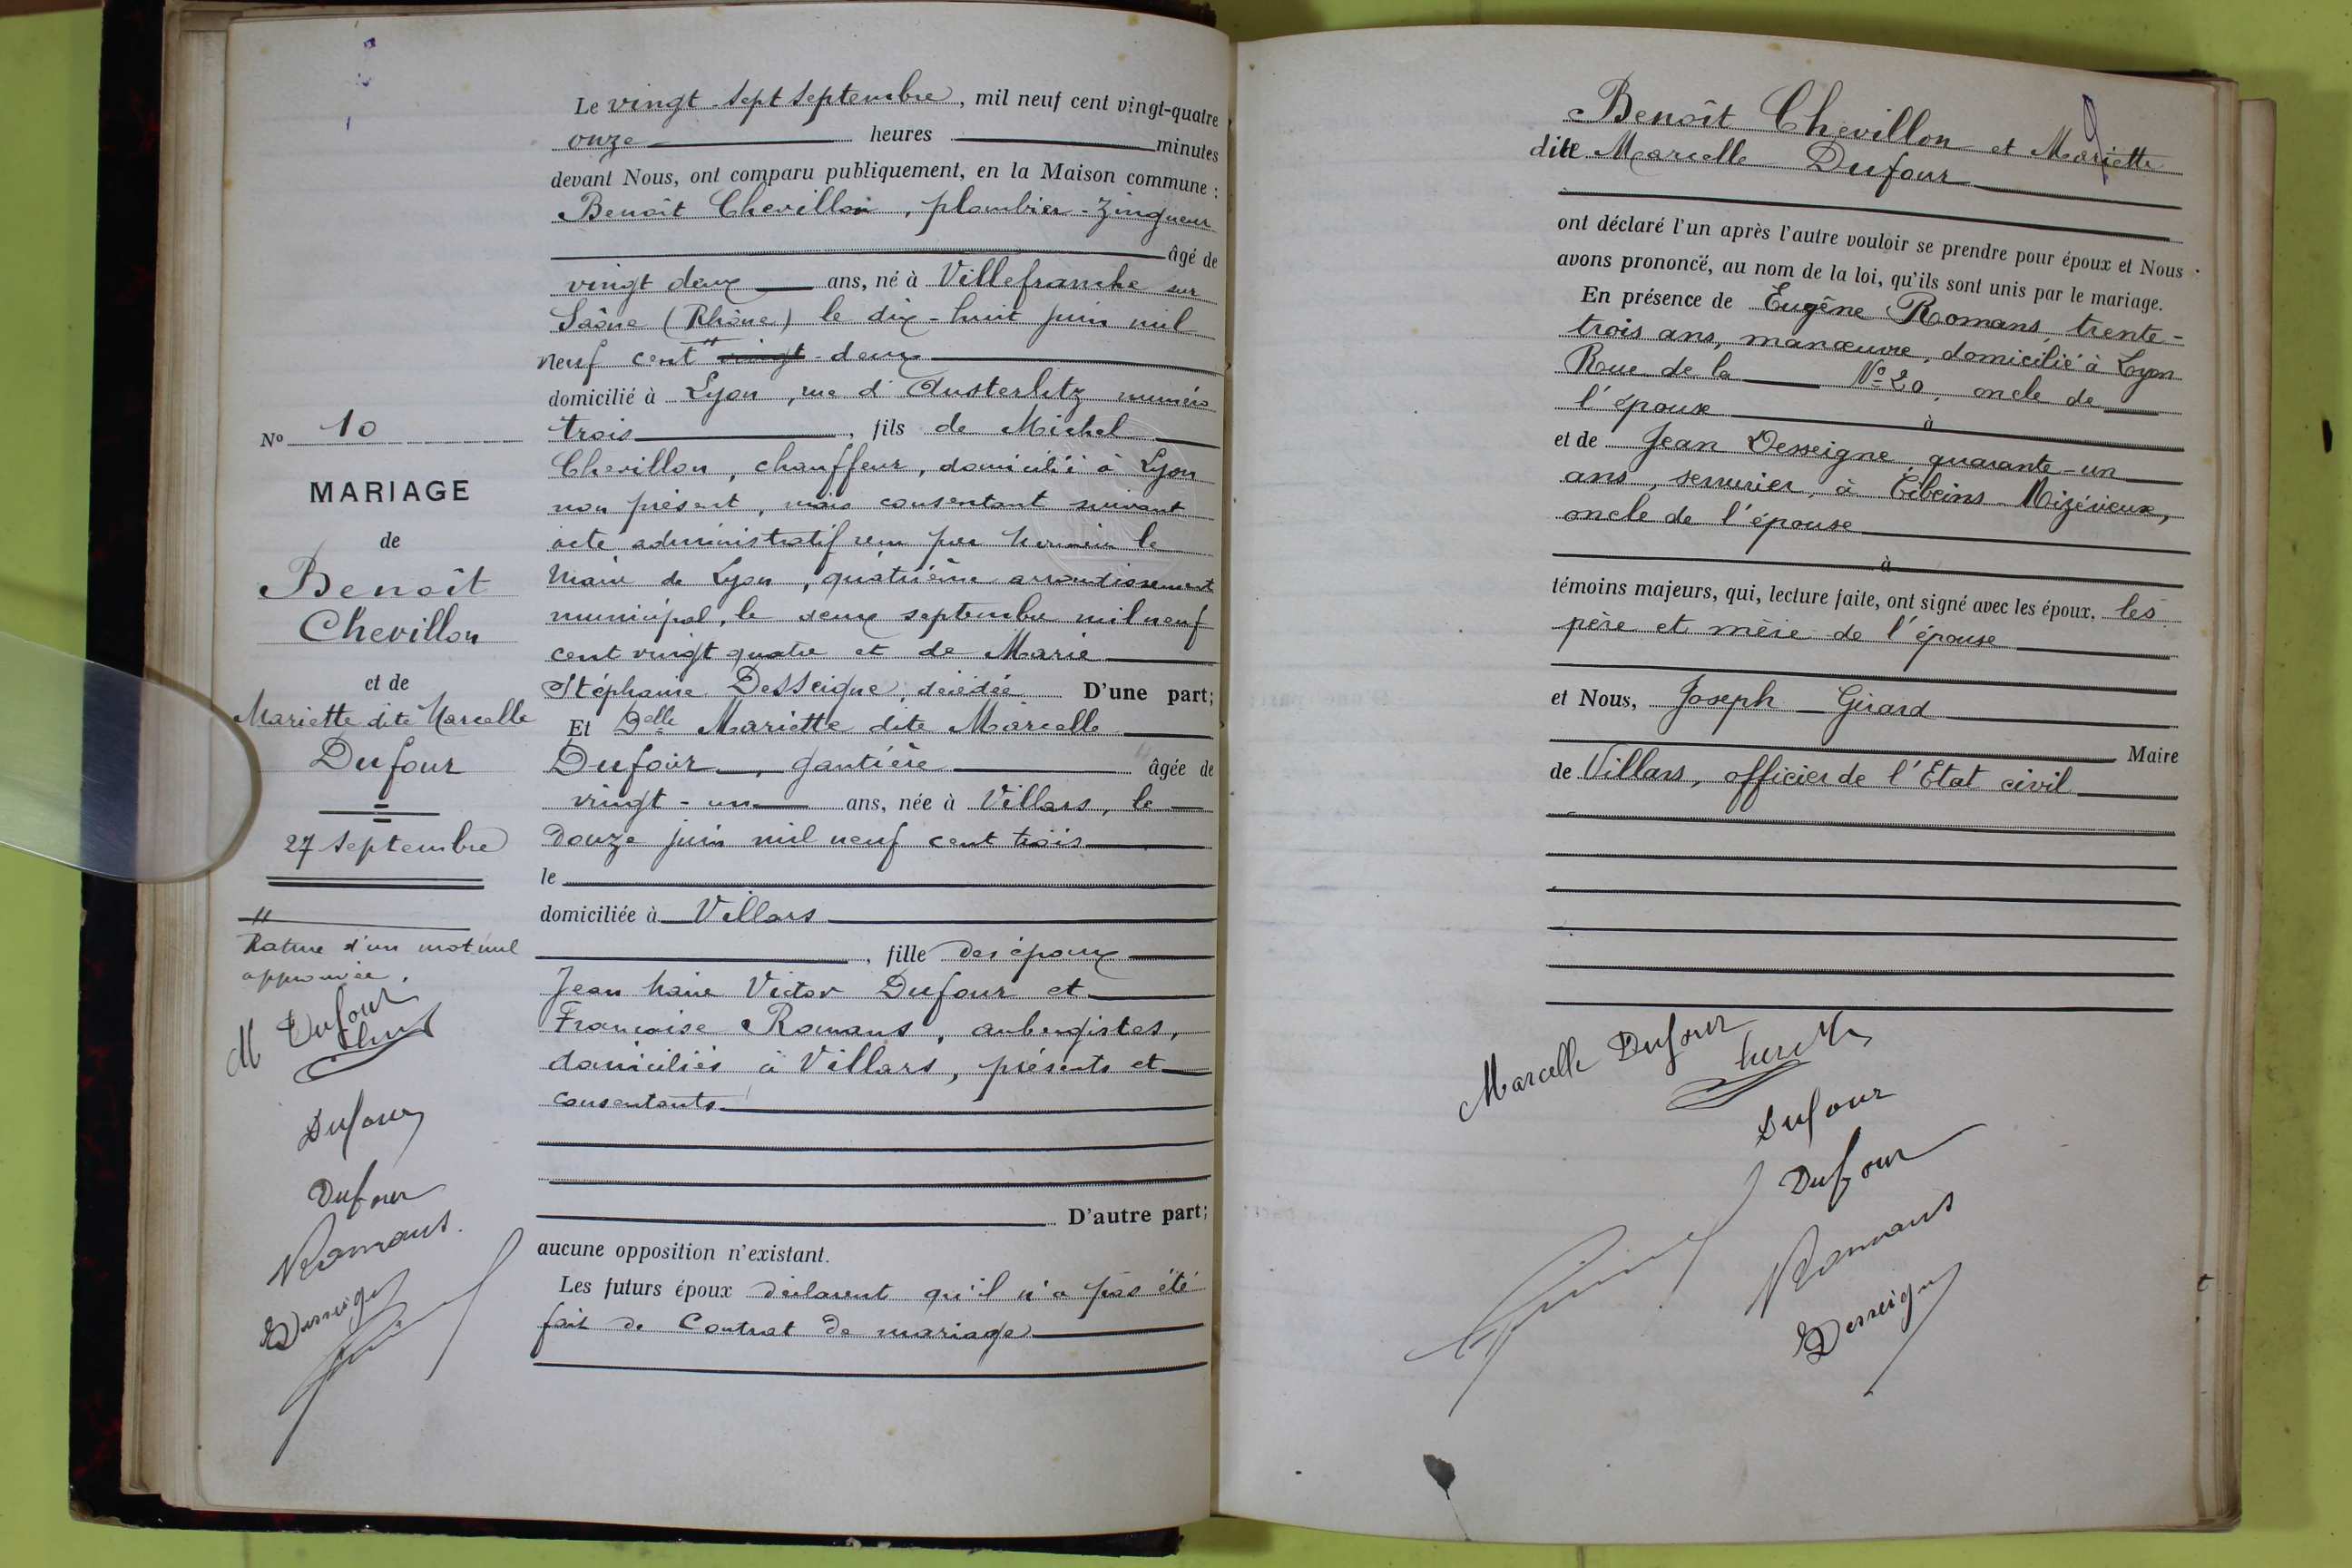 Le vingt-sept septembre, mil neuf cent vingt-quatre
onze heures minutes
devant Nous, ont comparu publiquement, en la Maison commune :
Benoît Chevillon, plombier-zingueur
âgé de
vingt deux ans, né à Villefranche sur
Saône (Rhône) le dix-huit juin mil
neuf cent vingt-deux
domicilié à Lyon, rue d'Austerlitz numéro
trois, fils de Michel
Chevillon, chauffeur, domicilié à Lyon
non présent, mais consentant suivant
acte administratif reçu par le
Maire de Lyon, quatrième arrondissement
municipal, le deux septembre mil neuf
cent vingt quatre et de Marie
Stéphanie Desseigne, décédée D'une part;
Et Delle Mariette dite Marcelle
Dufour, gantière âgée de
vingt-un ans, née à Villars, le
douze juin mil neuf cent trois
le
domiciliée à Villars
, fille des époux
Jean Marie Victor Dufour et
Françoise Romans, aubergistes,
domiciliés à Villars, présents et
consentants
D'autre part;
aucune opposition n'existant.
Les futurs époux déclarent qu'il n'a pas été
fait de contrat de mariage
No 10
MARIAGE
de
Benoît
Chevillon
et de
Mariette dite Marcelle
Dufour
27 septembre
"
Rature d'un mot nul
approuvée.
M Dufour
Dufour
Dufour
Romans.
Desseigne
Benoît Chevillon et Mariette
dite Marcelle Dufour
ont déclaré l'un après l'autre vouloir se prendre pour époux et Nous
avons prononcé, au nom de la loi, qu'ils sont unis par le mariage.
En présence de Eugêne Romans, trente-
trois ans, manœuvre, domicilié à Lyon
Rue de la No 20, oncle de
l'épouse
à
et de Jean Desseigne, quarante-un
ans, serrurier, à Cibeins-Mizérieux,
oncle de l'épouse
à
témoins majeurs, qui, lecture faite, ont signé avec les époux, les
père et mère de l'épouse
et Nous, Joseph Girard
Maire
de Villars, officier de l'Etat civil
Marcelle Dufour
Dufour
Dufour
Romans
Desseigne